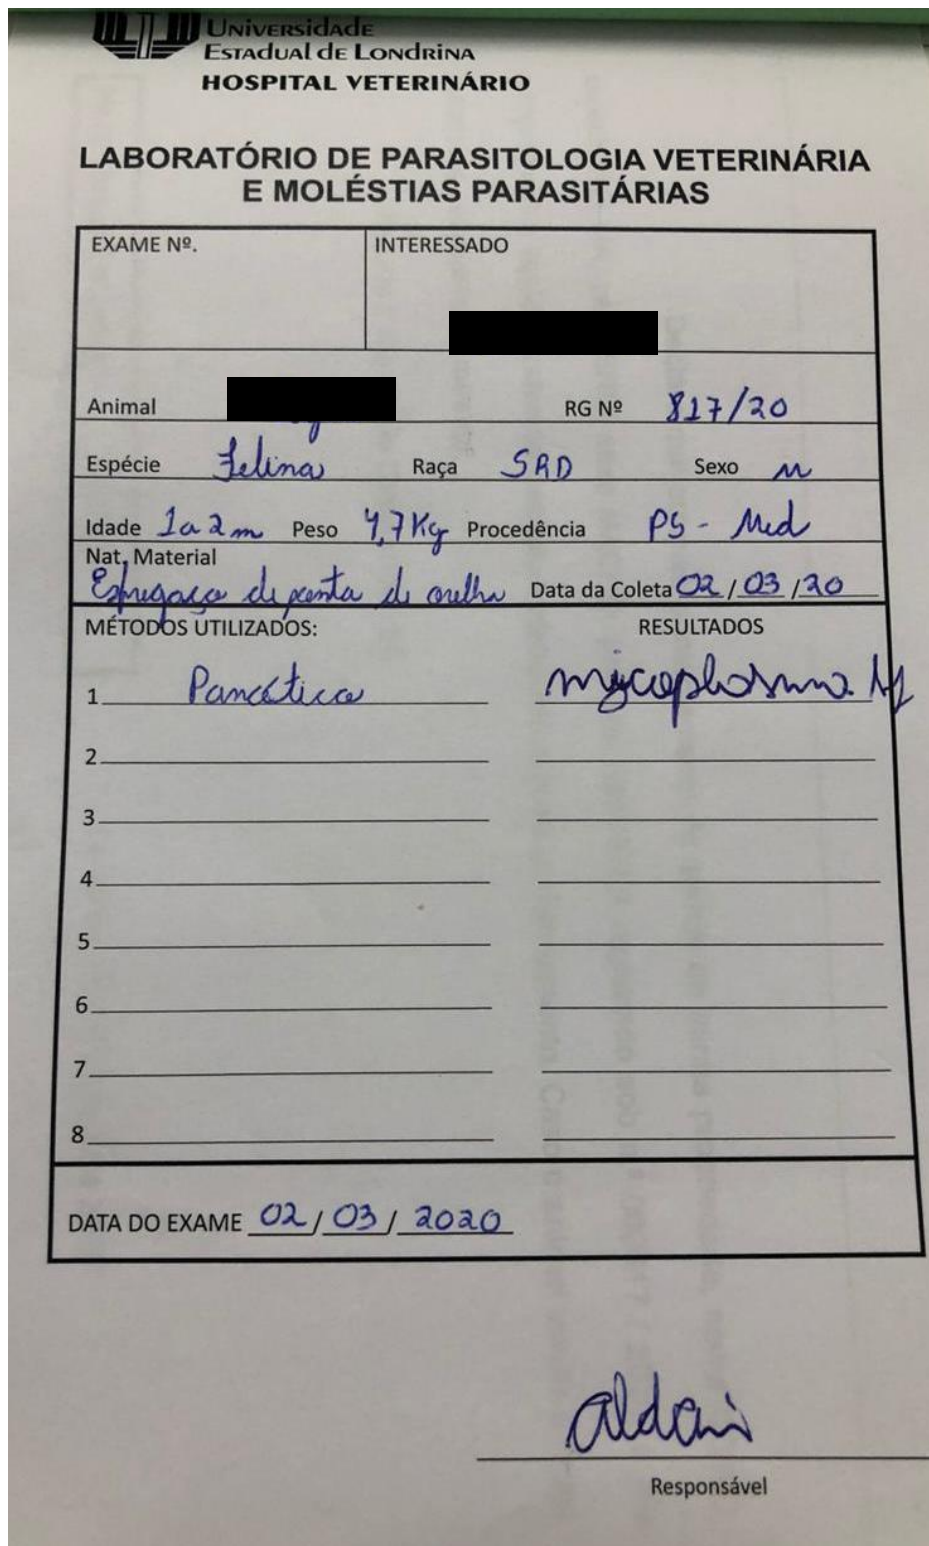 Universidade
Estadual de Londrina
HOSPITAL VETERINÁRIO
LABORATÓRIO DE PARASITOLOGIA VETERINÁRIA
E MOLÉSTIAS PARASITÁRIAS
EXAME Nº. INTERESSADO
Animal RG Nº 817/20
Espécie Felina Raça SRD Sexo M
Idade 1a2m Peso 4,7Kg Procedência PS - Med
Nat. Material
Esfregaço de ponta de orelha Data da Coleta 02/03/20
MÉTODOS UTILIZADOS: RESULTADOS
1 Panótico mycoplasma
2
3
4
5
6
7
8
DATA DO EXAME 02/03/2020
Aldair
Responsável